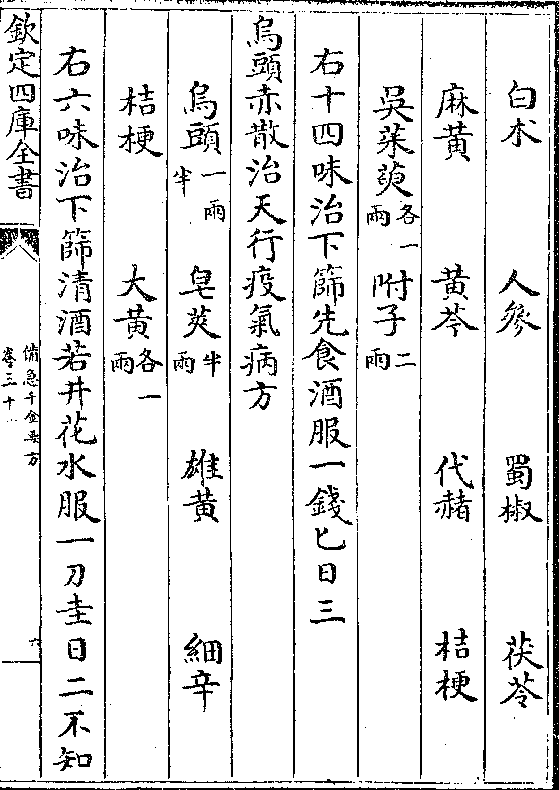 白术　人參　蜀椒　茯苓
麻黄　黄芩　代赭　桔梗
吳茱萸各一兩　附子二兩
右十四味治下篩先食酒服一錢匕日三
烏頭赤散治天行疫氣病方
烏頭一兩半　皂莢半兩　雄黄　細辛
桔梗　大黄各一兩
右六味治下篩清酒若井花水服一刀圭日二不知
欽定四庫全書
備急千金要方
卷三十
六